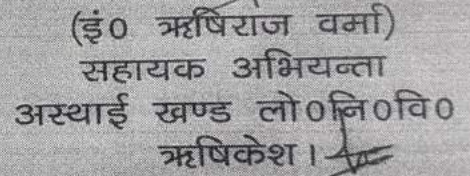 (इं0 ऋषिराज वर्मा)
सहायक अभियन्ता
अस्थाई खण्ड लो0नि0वि0
ऋषिकेश।